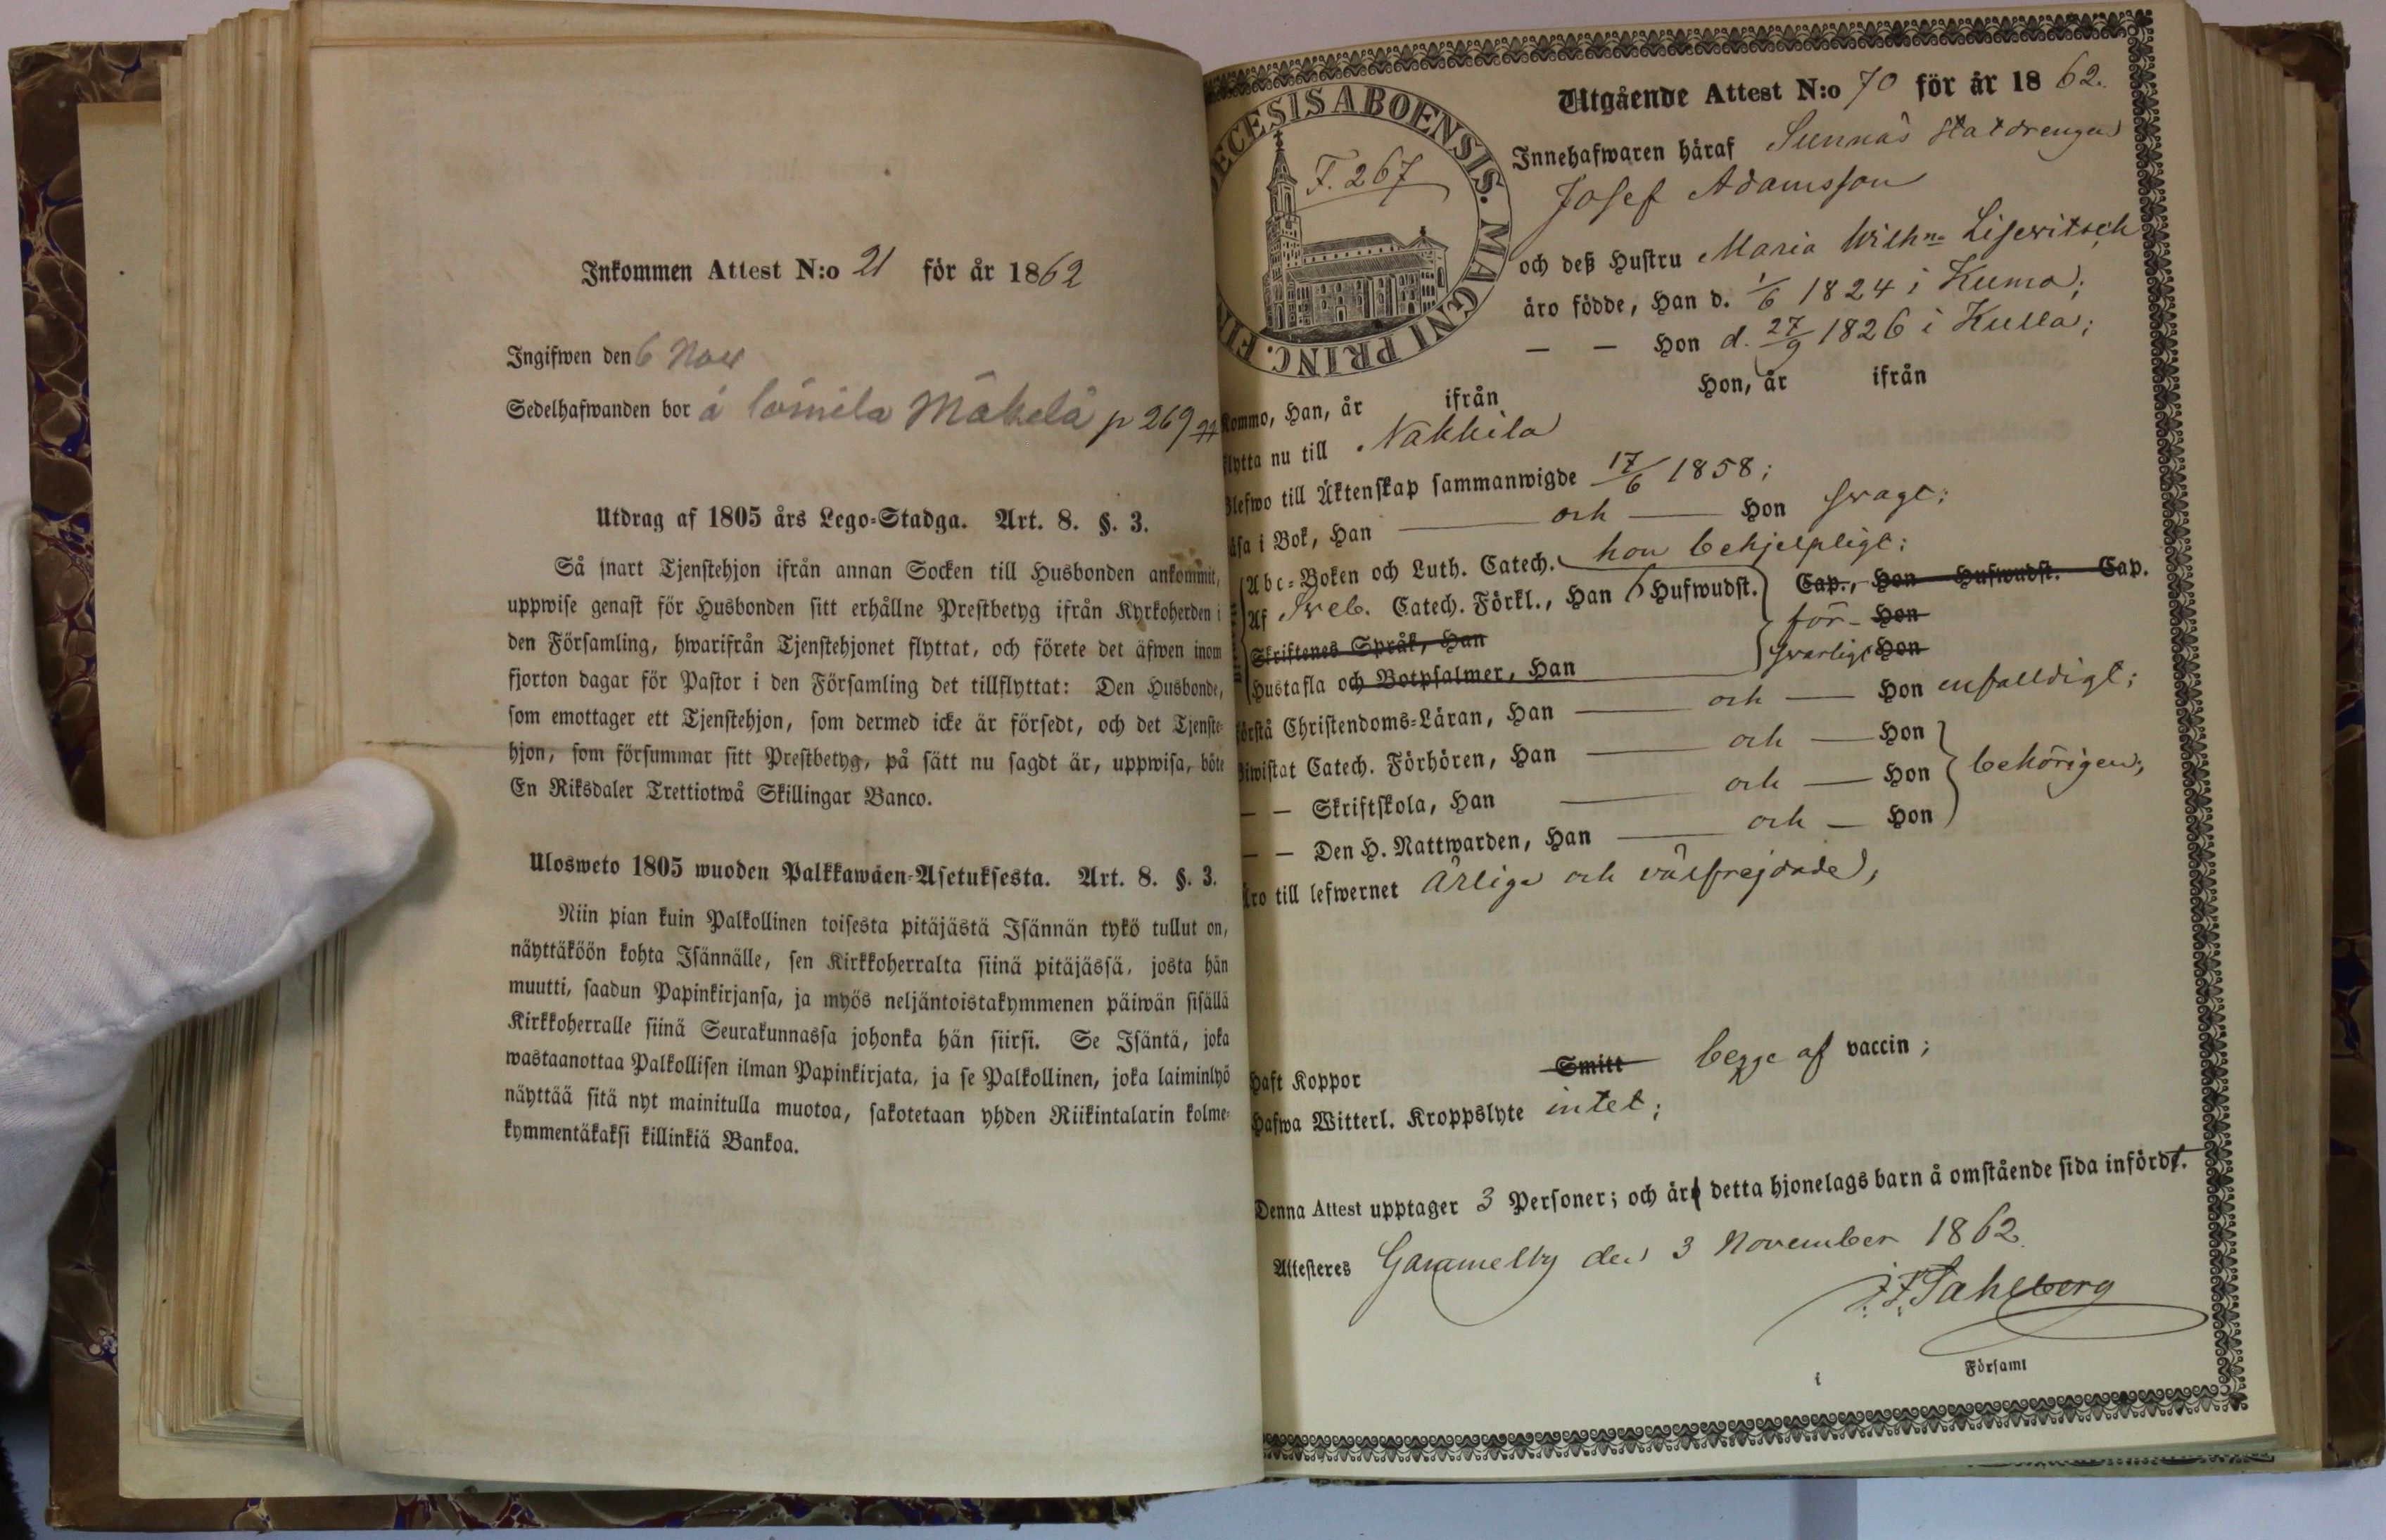 Inkommen Attest N:o 21 för år 1862
Ingifwen den 6 Nov
Sedelhafwanden bor å Lömila Mäkelä p 269
Utdrag af 1805 års Lego-Stadga. Art. 8. §. 3.
Så snart Tjenstehjon ifrån annan Socken till Husbonden ankommit,
uppwise genast för Husbonden sitt erhållne Prestbetyg ifrån Kyrkoherden i
den Församling, hwarifrån Tjenstehjonet flyttat, och förete det äfwen inom
fjorton dagar för Pastor i den Församling det tillflyttat: Den Husbonde,
som emottager ett Tjenstehjon, som dermed icke är försedt, och det Tjenste-
hjon, som försummar sitt Prestbetyg, på sätt nu sagdt är, uppwisa, böte
En Riksdaler Trettiotwå Skillingar Banco.
Ulosweto 1805 wuoden Palkkawäen-Asetuksesta. Art. 8. §. 3.
Niin pian kuin Palkollinen toisesta pitäjästä Isännän tykö tullut on,
näyttäköön kohta Isännälle, sen Kirkkoherralta siinä pitäjässä, josta hän
muutti, saadun Papinkirjansa, ja myös neljäntoistakymmenen päiwän sisällä
Kirkkoherralle siinä Seurakunnassa johonka hän siirsi. Se Isäntä, joka
wastaanottaa Palkollisen ilman Papinkirjata, ja se Palkollinen, joka laiminlyö
näyttää sitä nyt mainitulla muotoa, sakotetaan yhden Riikintalarin kolme-
kymmentäkaksi killinkiä Bankoa.
ECESIS ABOENSIS. MAGNI PRINC. FIN
F. 267
Utgående Attest N:o 70 för år 1862.
Innehafwaren häraf Sunnäs statdrengen
Josef Adamsson
och deß Hustru Maria Wilhna Lisewitsch
äro födde, Han d. 1/6 1824 i Kumo;
— — Hon d. 27/9 1826 i Kulla;
Kommo, Han, år ifrån Hon, år ifrån
flytta nu till Nakkila
Blefwo till Äktenskap sammanwigde 17/6 1858;
läsa i Bok, Han — och — Hon swagt;
Abc-Boken och Luth. Catech. hon behjelpligt;
Af Sveb. Catech. Förkl., Han 6 Hufwudst. Cap., Hon Hufwudst. Cap.
Skriftenes Språk, Han för- Hon
Hustafla och Botpsalmer, Han svarligt Hon
förstå Christendoms-Läran, Han — och — Hon enfalldigt;
Biwistat Catech. Förhören, Han — och — Hon
— — Skriftskola, Han — och — Hon behörigen;
— — Den H. Nattwarden, Han — och — Hon
Äro till lefwernet ärliga och välfrejdade,
Haft Koppor Smitt begge af vaccin;
Hafwa Witterl. Kroppslyte intet;
Denna Attest upptager 3 Personer; och är detta hjonelags barn å omstående sida infördt.
Attesteres Gammelby den 3 November 1862.
J. F. Sahlberg
i Församl